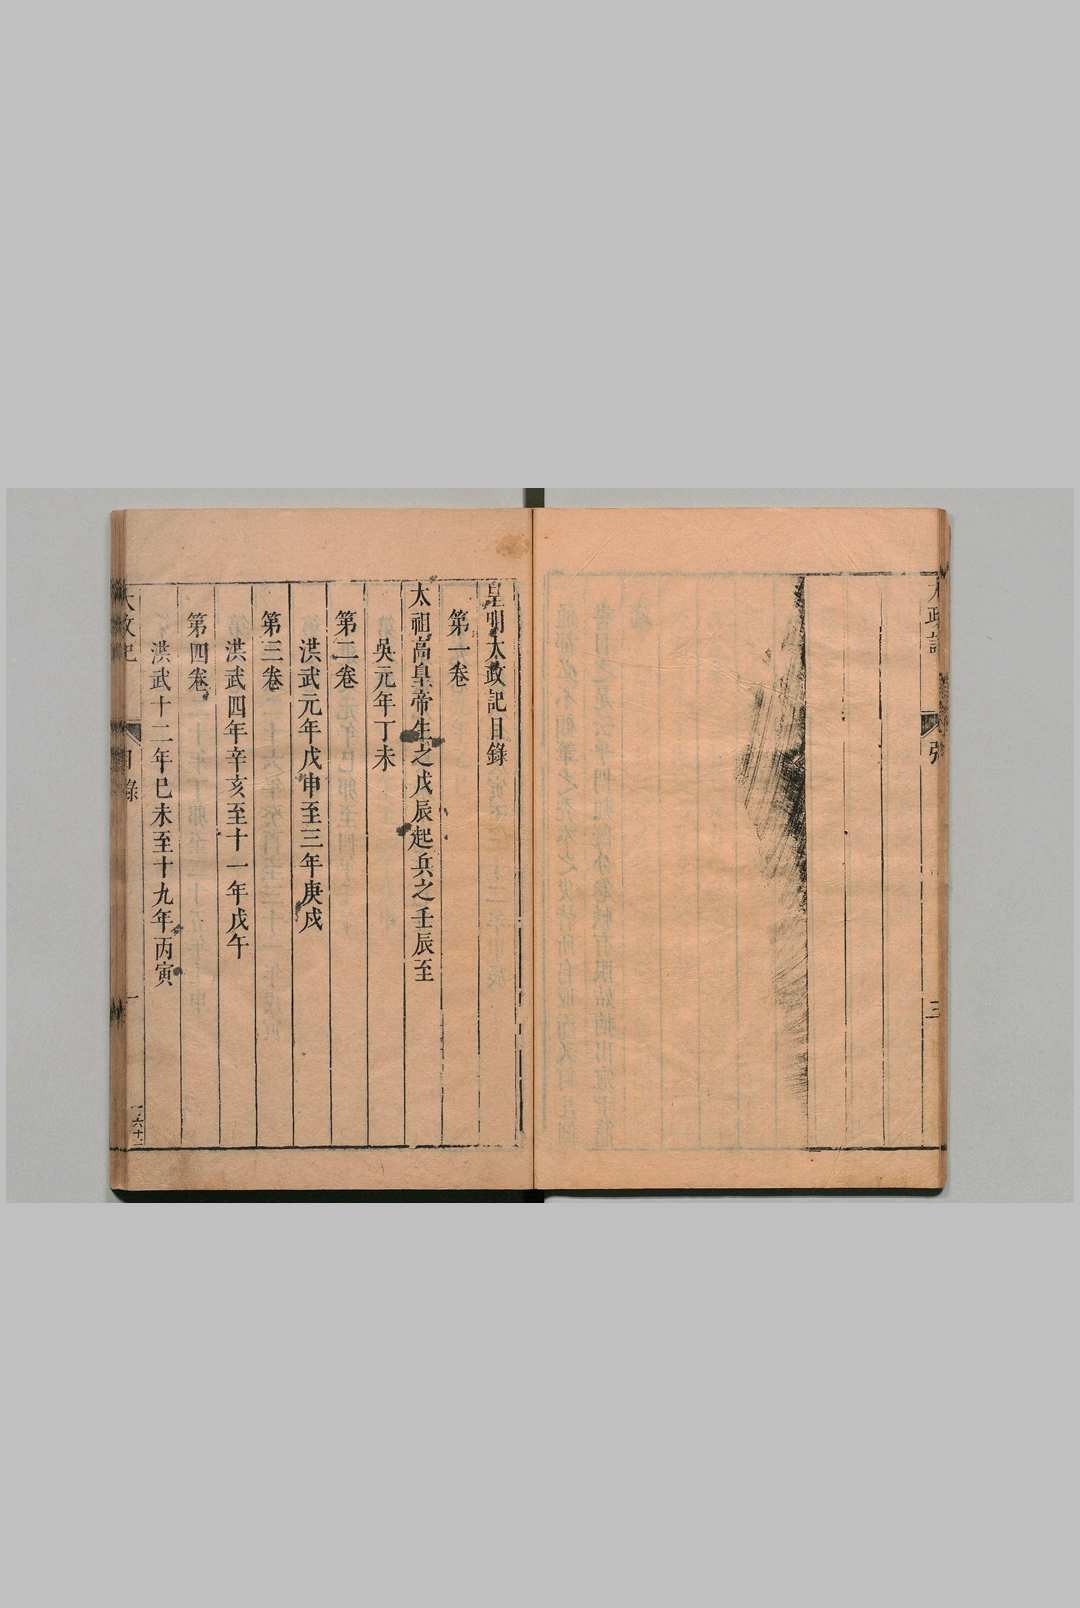 大政記
三
皇明大政記目錄
第一卷
太祖高皇帝生之戊辰起兵之壬辰至
吳元年丁未
第二卷
洪武元年戊申至三年庚戌
第三卷
洪武四年辛亥至十一年戊午
第四卷
洪武十二年巳未至十九年丙寅
大政記
目錄
一